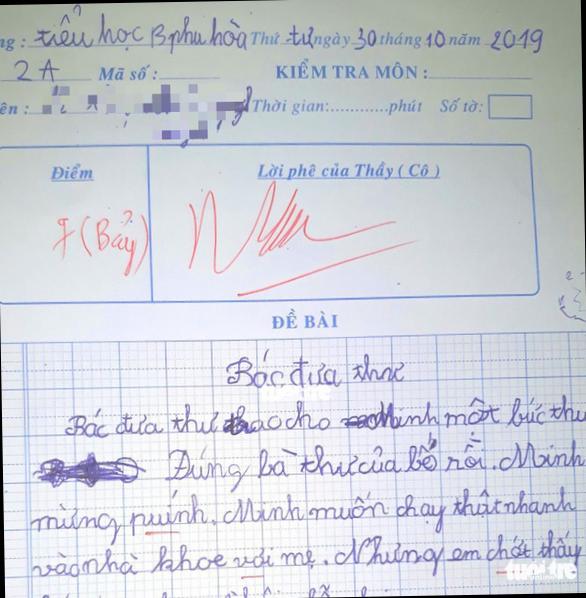 ng : tiểu học B phu hòa Thứ tư ngày 30 tháng 10 năm 2019
2A Mã số : KIỂM TRA MÔN :
ên : Thời gian:............phút Số tờ:
Điểm
Lời phê của Thầy ( Cô )
7 (Bảy)
ĐỀ BÀI
Bác đưa thư
Bác đưa thư trao cho Minh một bức thư
Đúng là thư của bố rồi. Minh
mừng puính. Minh muốn chạy thật nhanh
vào nhà khoe với mẹ. Nhưng em chợt thấy
tuổi trẻ